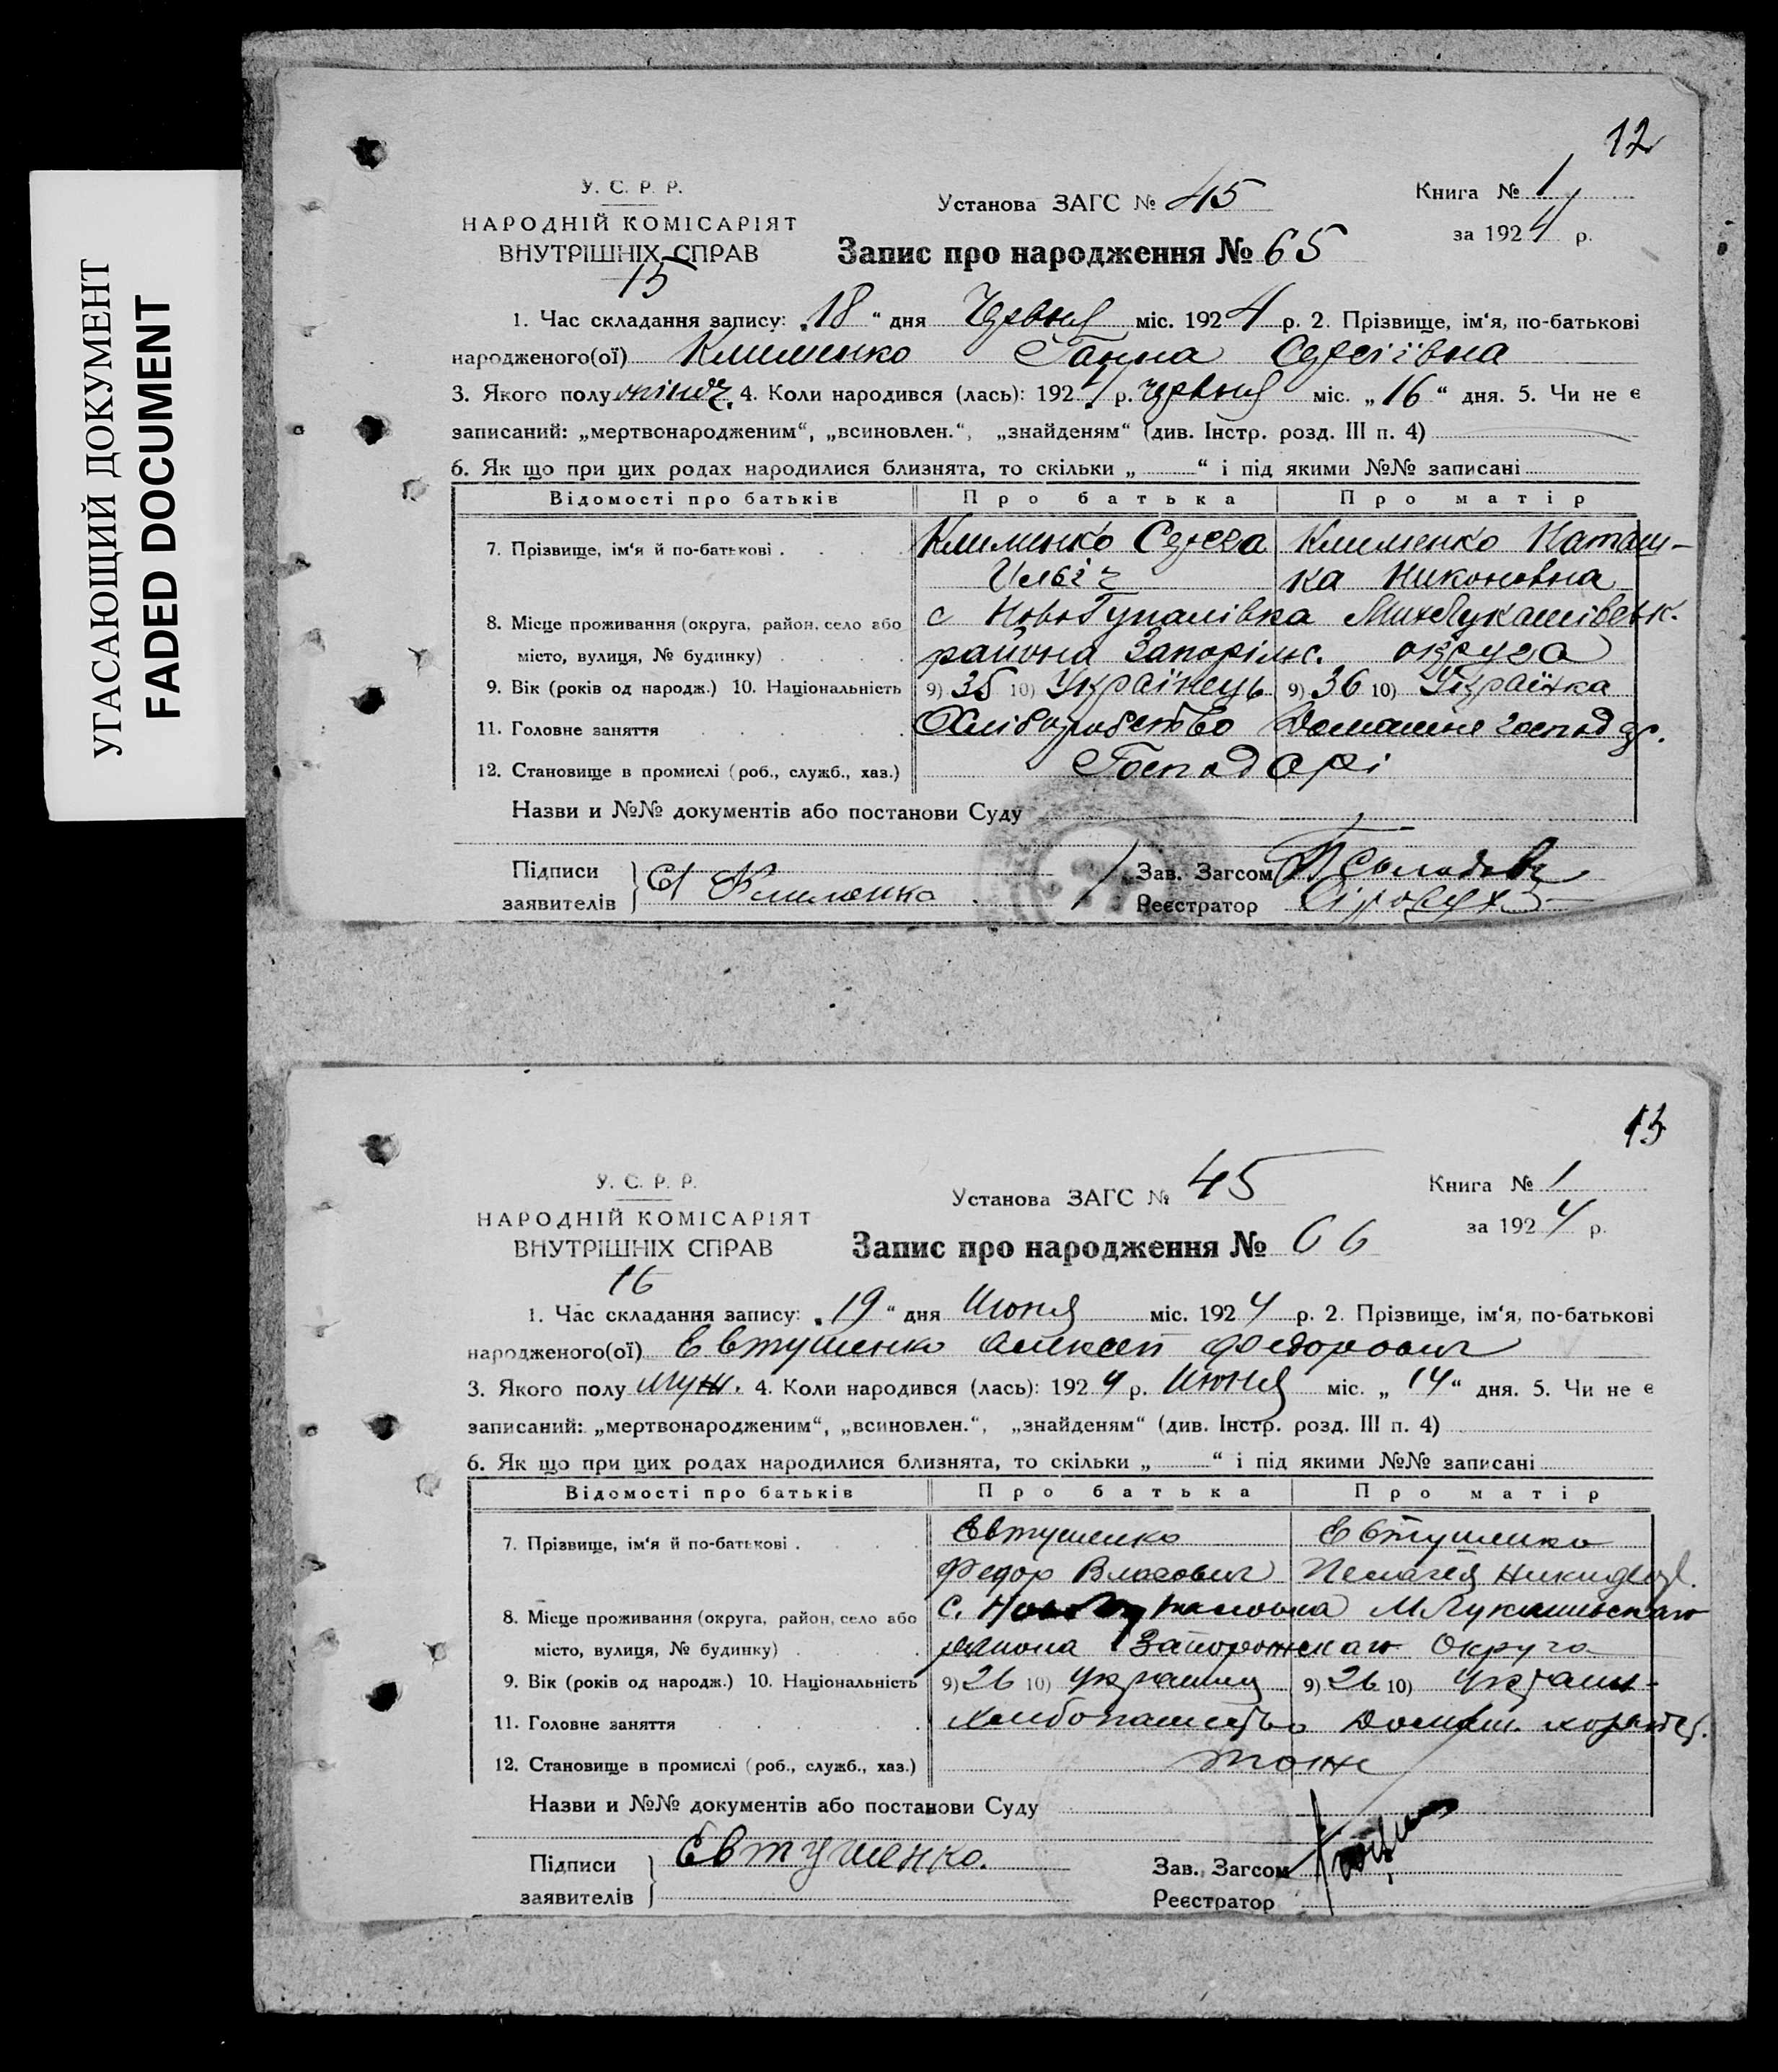 УГАСАЮЩИЙ ДОКУМЕНТ
FADED DOCUMENT
12
У. С. Р. Р.
НАРОДНІЙ КОМІСАРІЯТ
ВНУТРІШНІХ СПРАВ
15
Установа ЗАГС № 45
Книга № 1
за 1924 р.
Запис про народження № 65
1. Час складання запису: „18“ дня Червня міс. 1924 р. 2. Прізвище, ім‘я, по-батькові
народженого(ої) Клименко Ганна Сергіївна
3. Якого полу жіноч. 4. Коли народився (лась): 1924 р. червня міс. „16“ дня. 5. Чи не є
записаний: „мертвонародженим“, „всиновлен.“, „знайденям“ (див. Інстр. розд. III п. 4)
6. Як що при цих родах народилися близнята, то скільки „ “ і під якими №№ записані
Відомості про батьків Про батька Про матір
7. Прізвище, ім‘я й по-батькові . Клименко Клименко Наташ-
ка Никоновна
8. Місце проживання (округа, район, село або с НовоГупалівка МихЛукашівськ.
місто, вулиця, № будинку) района Запоріжс. округа
9. Вік (років од народж.) 10. Національність 9) 35 10) Українець 9) 36 10) Українка
11. Головне заняття Хліборобство Домашне господар.
12. Становище в промислі (роб., служб., хаз.) Господарі
Назви и №№ документів або постанови Суду
Підписи
заявителів
Клименко
Зав. Загсом
Реєстратор
13
У. С. Р. Р.
НАРОДНІЙ КОМІСАРІЯТ
ВНУТРІШНІХ СПРАВ
16
Установа ЗАГС № 45
Книга № 1
за 1924 р.
Запис про народження № 66
1. Час складання запису: „19“ дня Июня міс. 1924 р. 2. Прізвище, ім‘я, по-батькові
народженого(ої) Евтушенко Алексей Федорович
3. Якого полу муж. 4. Коли народився (лась): 1924 р. Июня міс. „14“ дня. 5. Чи не є
записаний: „мертвонародженим“, „всиновлен.“, „знайденям“ (див. Інстр. розд. III п. 4)
6. Як що при цих родах народилися близнята, то скільки „ “ і під якими №№ записані
Відомості про батьків Про батька Про матір
7. Прізвище, ім‘я й по-батькові . Евтушенко Евтушенко
Федор Власович Пелагея
8. Місце проживання (округа, район, село або с. М Лукашевскаго
місто, вулиця, № будинку) района Запорожскаго Округа
9. Вік (років од народж.) 10. Національність 9) 26 10) украинец 9) 26 10) украин-
11. Головне заняття хлебопашество Домаш. хозяйст.
12. Становище в промислі (роб., служб., хаз.) тоже
Назви и №№ документів або постанови Суду
Підписи
заявителів
Евтушенко.
Зав. Загсом
Реєстратор